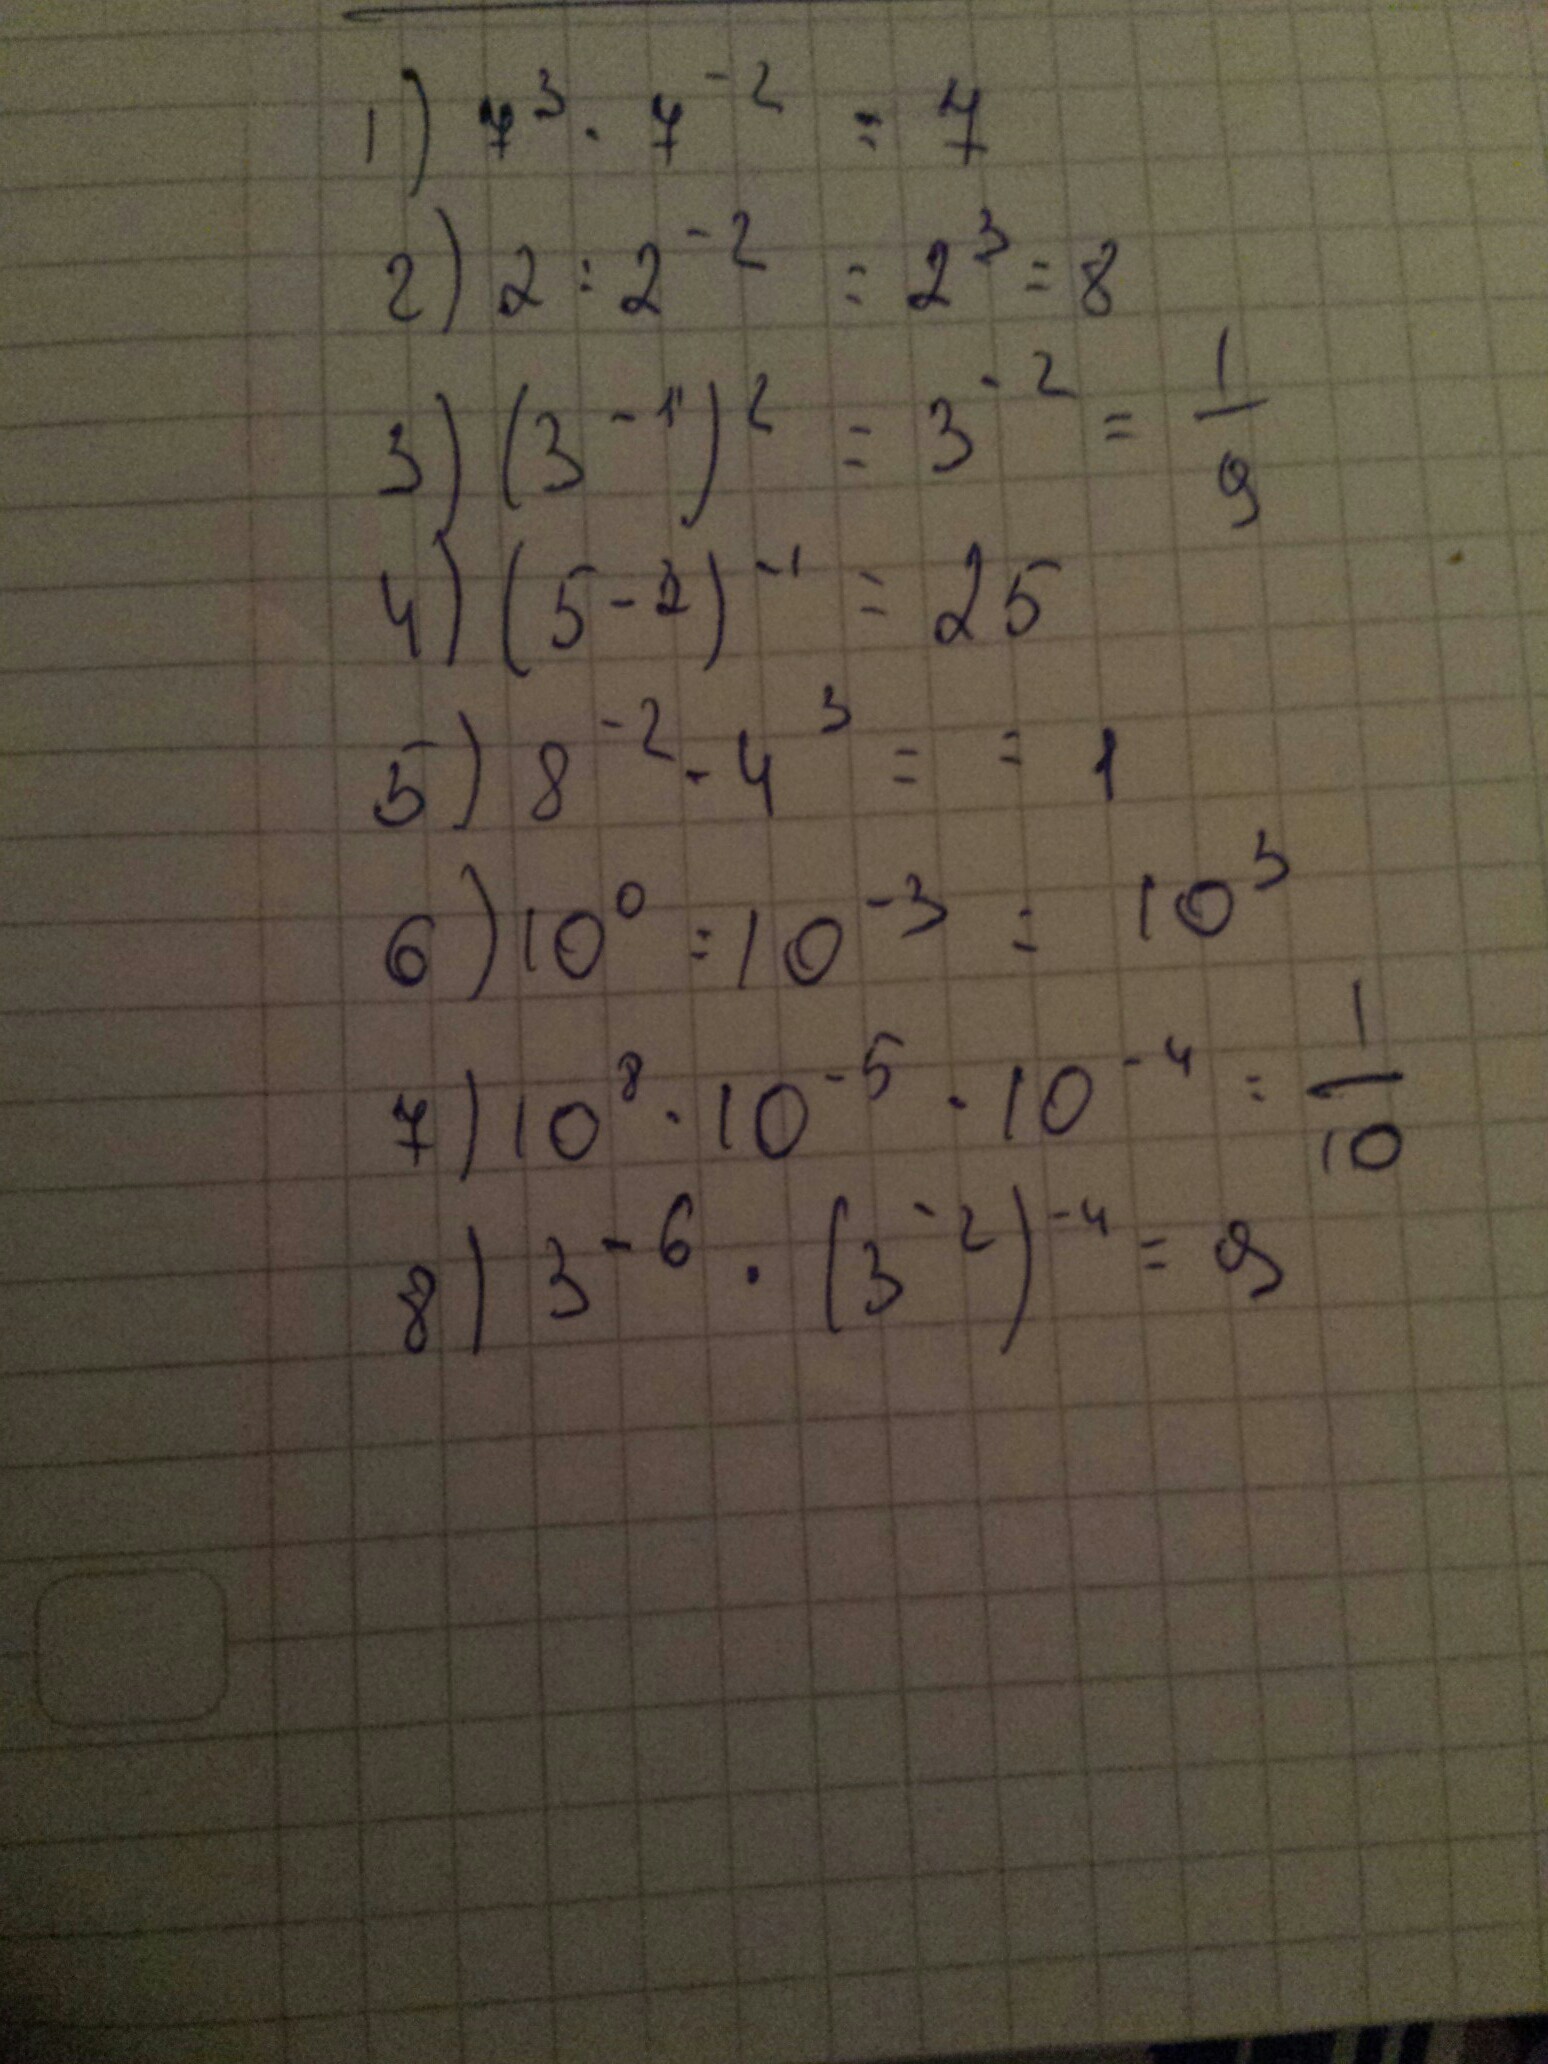 1) 7³ · 7⁻² = 7
2) 2 : 2⁻² = 2³ = 8
3) (3⁻¹)² = 3⁻² = 1/9
4) (5-2)⁻¹ = 25
5) 8⁻² · 4³ = = 1
6) 10⁰ : 10⁻³ = 10³
7) 10⁸ · 10⁻⁵ · 10⁻⁴ = 1/10
8) 3⁻⁶ · (3⁻²)⁻⁴ = 9